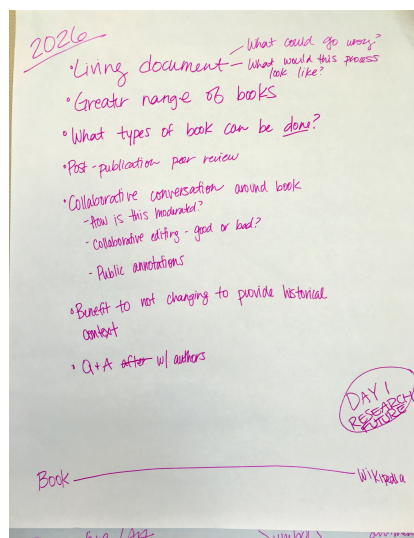 2026
• Living document - What could go wrong?
- What would this process
look like?
• Greater range of books
• What types of book can be done?
• Post-publication peer review
• Collaborative conversation around book
- How is this moderated?
- Collaborative editing - good or bad?
- Public annotations
• Benefit to not changing to provide historical
context
• Q+A after w/ authors
DAY 1
RESEARCH
FUTURE
Book
Wikipedia